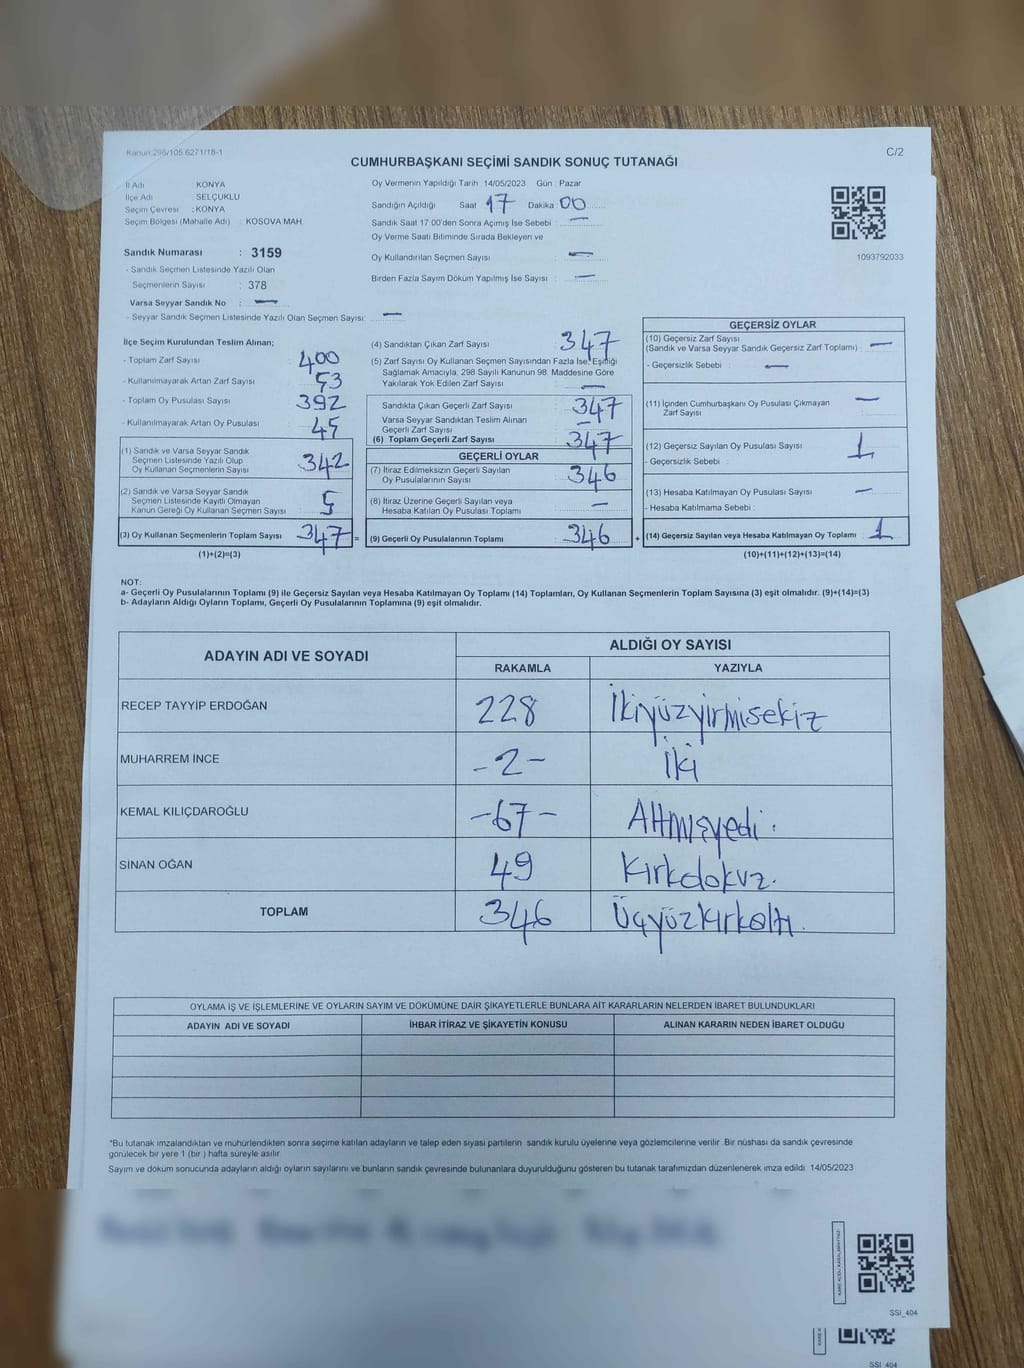 Kanun:298/105 6271/18-1
C/2
CUMHURBAŞKANI SEÇİMİ SANDIK SONUÇ TUTANAĞI
İl Adı : KONYA
İlçe Adı : SELÇUKLU
Seçim Çevresi : KONYA
Seçim Bölgesi (Mahalle Adı) : KOSOVA MAH.
Sandık Numarası : 3159
- Sandık Seçmen Listesinde Yazılı Olan
Seçmenlerin Sayısı : 378
Varsa Seyyar Sandık No : —
- Seyyar Sandık Seçmen Listesinde Yazılı Olan Seçmen Sayısı: —
Oy Vermenin Yapıldığı Tarih 14/05/2023 Gün : Pazar
Sandığın Açıldığı Saat 17 Dakika 00
Sandık Saat 17:00'den Sonra Açımış İse Sebebi : —
Oy Verme Saati Bitiminde Sırada Bekleyen ve
Oy Kullandırılan Seçmen Sayısı : —
Birden Fazla Sayım Döküm Yapılmış İse Sayısı : —
1093792033
İlçe Seçim Kurulundan Teslim Alınan;
- Toplam Zarf Sayısı : 400
- Kullanılmayarak Artan Zarf Sayısı : 53
- Toplam Oy Pusulası Sayısı : 392
- Kullanılmayarak Artan Oy Pusulası : 45
(1) Sandık ve Varsa Seyyar Sandık
Seçmen Listesinde Yazılı Olup
Oy Kullanan Seçmenlerin Sayısı : 342
(2) Sandık ve Varsa Seyyar Sandık
Seçmen Listesinde Kayıtlı Olmayan
Kanun Gereği Oy Kullanan Seçmen Sayısı : 5
(3) Oy Kullanan Seçmenlerin Toplam Sayısı 347 =
(1)+(2)=(3)
(4) Sandıktan Çıkan Zarf Sayısı : 347
(5) Zarf Sayısı Oy Kullanan Seçmen Sayısından Fazla İse, Eşitliği
Sağlamak Amacıyla; 298 Sayılı Kanunun 98. Maddesine Göre
Yakılarak Yok Edilen Zarf Sayısı : —
Sandıkta Çıkan Geçerli Zarf Sayısı : 347
Varsa Seyyar Sandıktan Teslim Alınan
Geçerli Zarf Sayısı : —
(6) Toplam Geçerli Zarf Sayısı : 347
GEÇERLİ OYLAR
(7) İtiraz Edilmeksizin Geçerli Sayılan
Oy Pusulalarının Sayısı : 346
(8) İtiraz Üzerine Geçerli Sayılan veya
Hesaba Katılan Oy Pusulası Toplamı : —
(9) Geçerli Oy Pusulalarının Toplamı : 346 +
GEÇERSİZ OYLAR
(10) Geçersiz Zarf Sayısı
(Sandık ve Varsa Seyyar Sandık Geçersiz Zarf Toplamı) : —
- Geçersizlik Sebebi : —
(11) İçinden Cumhurbaşkanı Oy Pusulası Çıkmayan
Zarf Sayısı : —
(12) Geçersiz Sayılan Oy Pusulası Sayısı : 1
- Geçersizlik Sebebi :
(13) Hesaba Katılmayan Oy Pusulası Sayısı : —
- Hesaba Katılmama Sebebi :
(14) Geçersiz Sayılan veya Hesaba Katılmayan Oy Toplamı : 1
(10)+(11)+(12)+(13)=(14)
NOT:
a- Geçerli Oy Pusulalarının Toplamı (9) ile Geçersiz Sayılan veya Hesaba Katılmayan Oy Toplamı (14) Toplamları, Oy Kullanan Seçmenlerin Toplam Sayısına (3) eşit olmalıdır. (9)+(14)=(3)
b- Adayların Aldığı Oyların Toplamı, Geçerli Oy Pusulalarının Toplamına (9) eşit olmalıdır.
ADAYIN ADI VE SOYADI
ALDIĞI OY SAYISI
RAKAMLA YAZIYLA
RECEP TAYYİP ERDOĞAN 228 İkiyüzyirmisekiz
MUHARREM İNCE -2- İki
KEMAL KILIÇDAROĞLU -67- Altmışyedi.
SİNAN OĞAN 49 Kırkdokuz.
TOPLAM 346 Üçyüzkırkaltı.
OYLAMA İŞ VE İŞLEMLERİNE VE OYLARIN SAYIM VE DÖKÜMÜNE DAİR ŞİKAYETLERLE BUNLARA AİT KARARLARIN NELERDEN İBARET BULUNDUKLARI
ADAYIN ADI VE SOYADI İHBAR İTİRAZ VE ŞİKAYETİN KONUSU ALINAN KARARIN NEDEN İBARET OLDUĞU
*Bu tutanak imzalandıktan ve mühürlendikten sonra seçime katılan adayların ve talep eden siyasi partilerin sandık kurulu üyelerine veya gözlemcilerine verilir. Bir nüshası da sandık çevresinde
görülecek bir yere 1 (bir) hafta süreyle asılır.
Sayım ve döküm sonucunda adayların aldığı oyların sayılarını ve bunların sandık çevresinde bulunanlara duyurulduğunu gösteren bu tutanak tarafımızdan düzenlenerek imza edildi. 14/05/2023
SSI_404
SSI_404